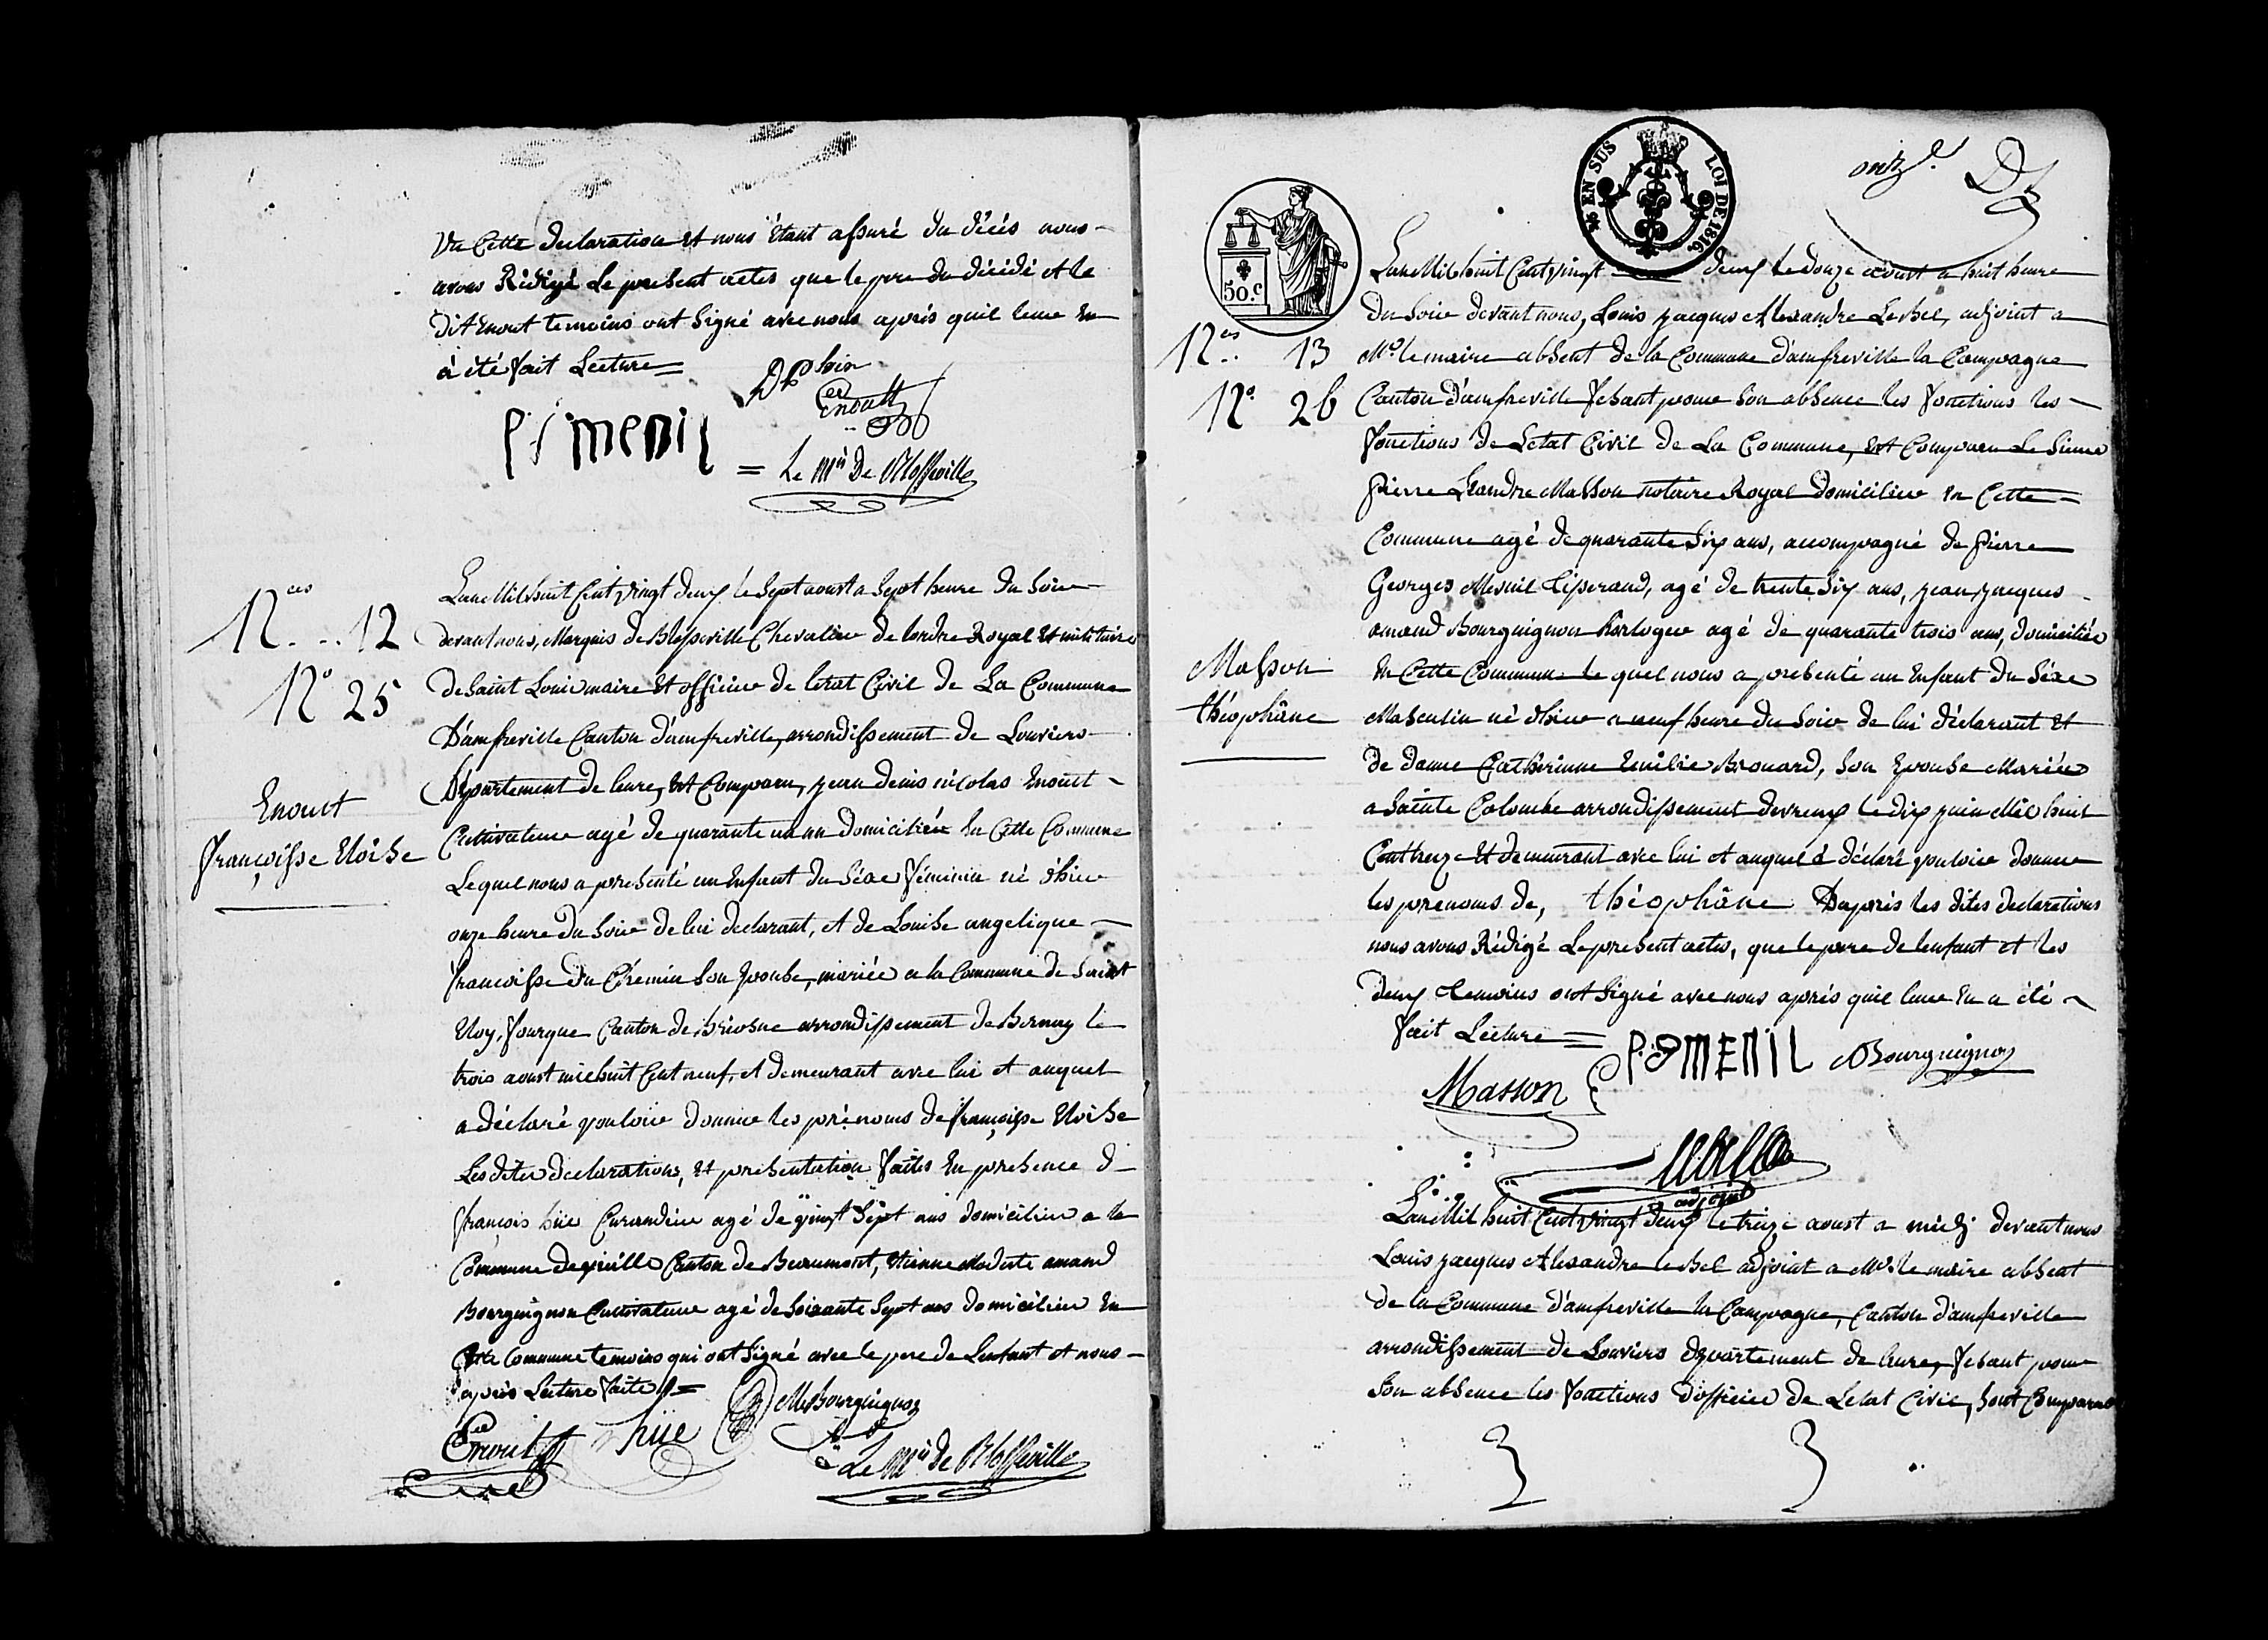 Vu Cette declaration et nous étant assuré du décés nous
avons Rédigé Le present actes que le pere du décédé et le
dit Enout temoins ont Signé avec nous après quil leur En
à été fait Lecture =
Enoult
P S MENIL
= Le Mis De Blosseville
Nces .. 12
N° 25
Enoust
françoisse Eloise
Lan Mil huit Cent vingt deux le Sept aoust a Sept heure du Soir
devant nous, Marquis de Blosseville Chevalier de lordre Royal Et militaire
de Saint Louis maire Et officier de letat Civil de La Commune
D'amfreville Canton d'amfreville, arrondissement de Louviers
Département de leure, Est Comparu, jean denis nicolas Enoust
Cultivateur agé de quarante un an domiciliée En Cette Commune
Lequel nous a presenté un Enfant du Séxe féminin né d'hier
onze heure du Soir de lui declarant, et de Louise angelique
francoisse du Chemin Son Epouse, mariée a la Commune de Saint
Eloy, fourque Canton de Briosne arrondissement de Bernay le
trois aoust mil huit Cent neuf, et demeurant avec lui et auquel
a déclaré vouloir donner les prénoms de françoisse Eloise
Les dites declarations, et présentation faites En presence d
françois hüe Curandier agé de vingt Sept ans domicilier a la
Commune de Canton de Beaumont, Etienne Modeste amand
Bourguignon Cultivateur agé de Soixante Sept ans domicilier En
Cette Commune temoins qui ont Signé avec le pere de Lenfant et nous
après Lecture faite =
MBourguignon
Enoult hüe
Le Mis de Blosseville
onze
EN SUS LOI DE 1816
50.c
Nces .. 13
N° 26
Masson
théophâne
Lan Mil huit Cent vingt deux Le douze aoust a huit heure
du Soir devant nous, Louis jacques Alexandre LeBel, adjoint a
Mr. le maire absent de la Commune d'amfreville la Campagne
Canton d'amfreville fesant pour Son absence les fonctions les
fonctions de Letat Civil de La Commune, Est Comparu Le Sieur
Pierre Léandre Masson notaire Royal domicilier En Cette
Commune agé de quarante Six ans, accompagné de Pierre
Georges Mesnil tisserand, agé de trente Six ans, jean jacques
amand Bourguignon horloger agé de quarante trois ans, domiciliée
En Cette Commune Le quel nous a presenté un Enfant du Séxe
Masculin né d'hier a neuf heure du Soir de lui déclarant Et
de dame Catherinne Emilie Brouard, Son Epouse Mariée
a Sainte Colombe arrondissement devreux le dix juin Mil huit
Cent treize Et demeurant avec lui et auquel à déclaré vouloir donner
les prenoms de, théophâne Daprès les dites declarations
nous avons Rédigé Le present actes, que le pere de lenfant et les
deux temoins ont Signé avec nous après quil leur En a été
fait Lecture =
P.G MENIL Bourguignon
Masson
LeBel
adjoint
Lan Mil huit Cent vingt deux le treize aoust a midi devant nous
Louis jacques Alexandre LeBel adjoint a Mr. le maire absent
de la Commune d'amfreville la Campagne, Canton d'amfreville
arrondissement de Louviers département de leure, fesant pour
Son absence les fonctions d'officier de Letat Civil, Sont Comparus